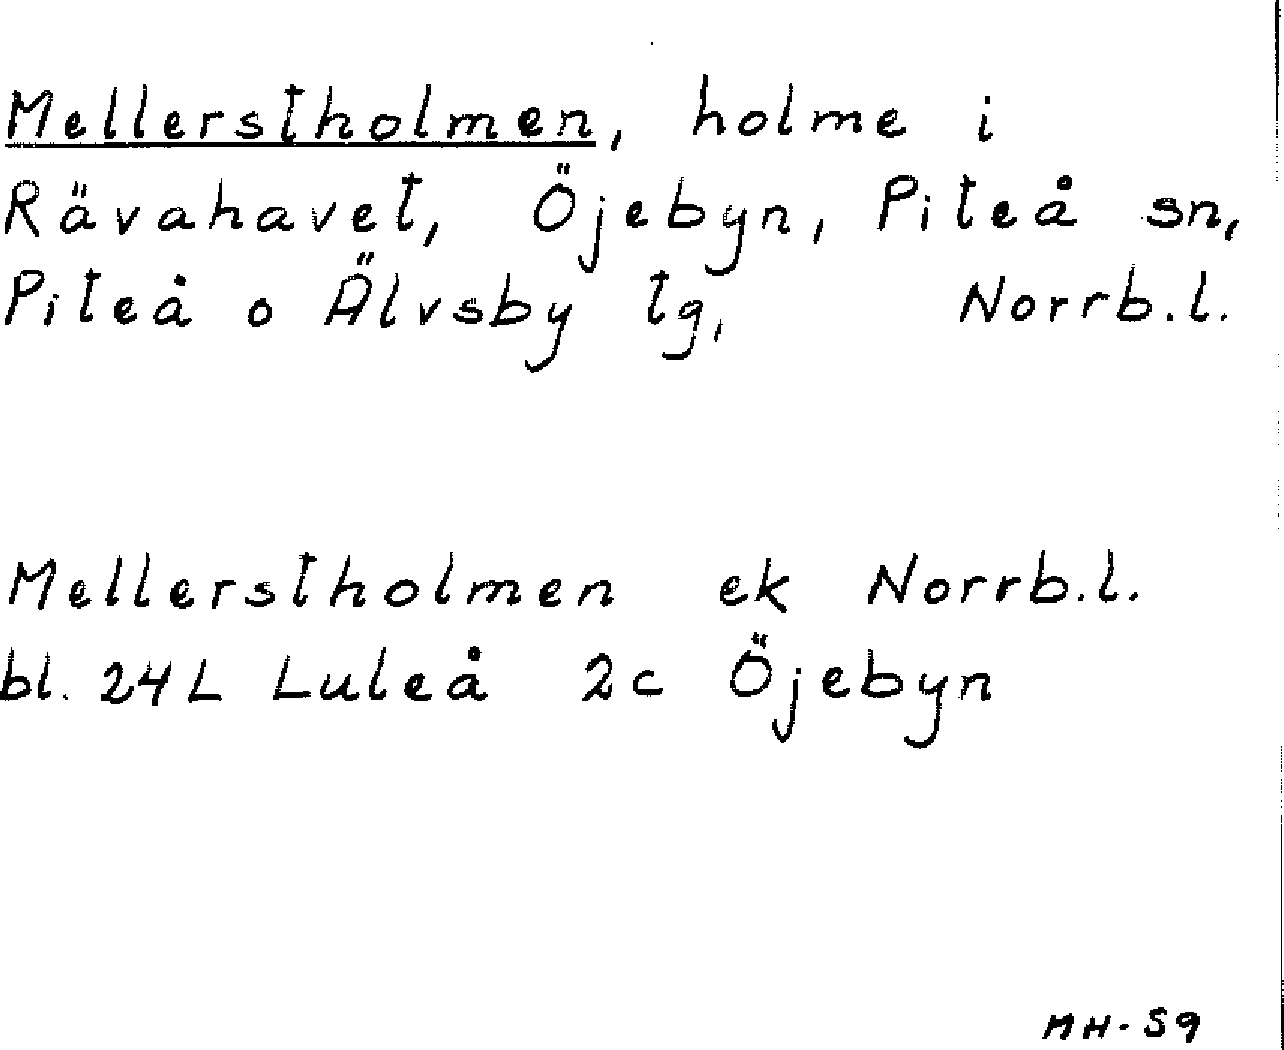 Mellerstholmen, holme i
Rävahavet, Öjebyn, Piteå sn,
Piteå o Älvsby tg, Norrb.l.
Mellerstholmen ek Norrb.l.
bl. 24L Luleå 2c Öjebyn
MH-59